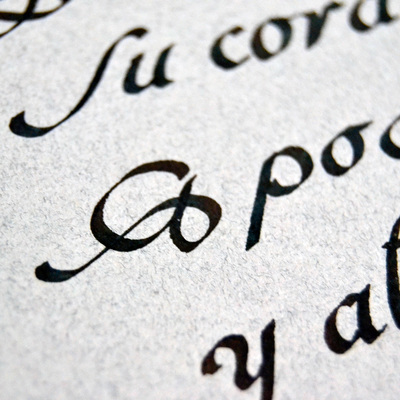 Su cora
poc
y al